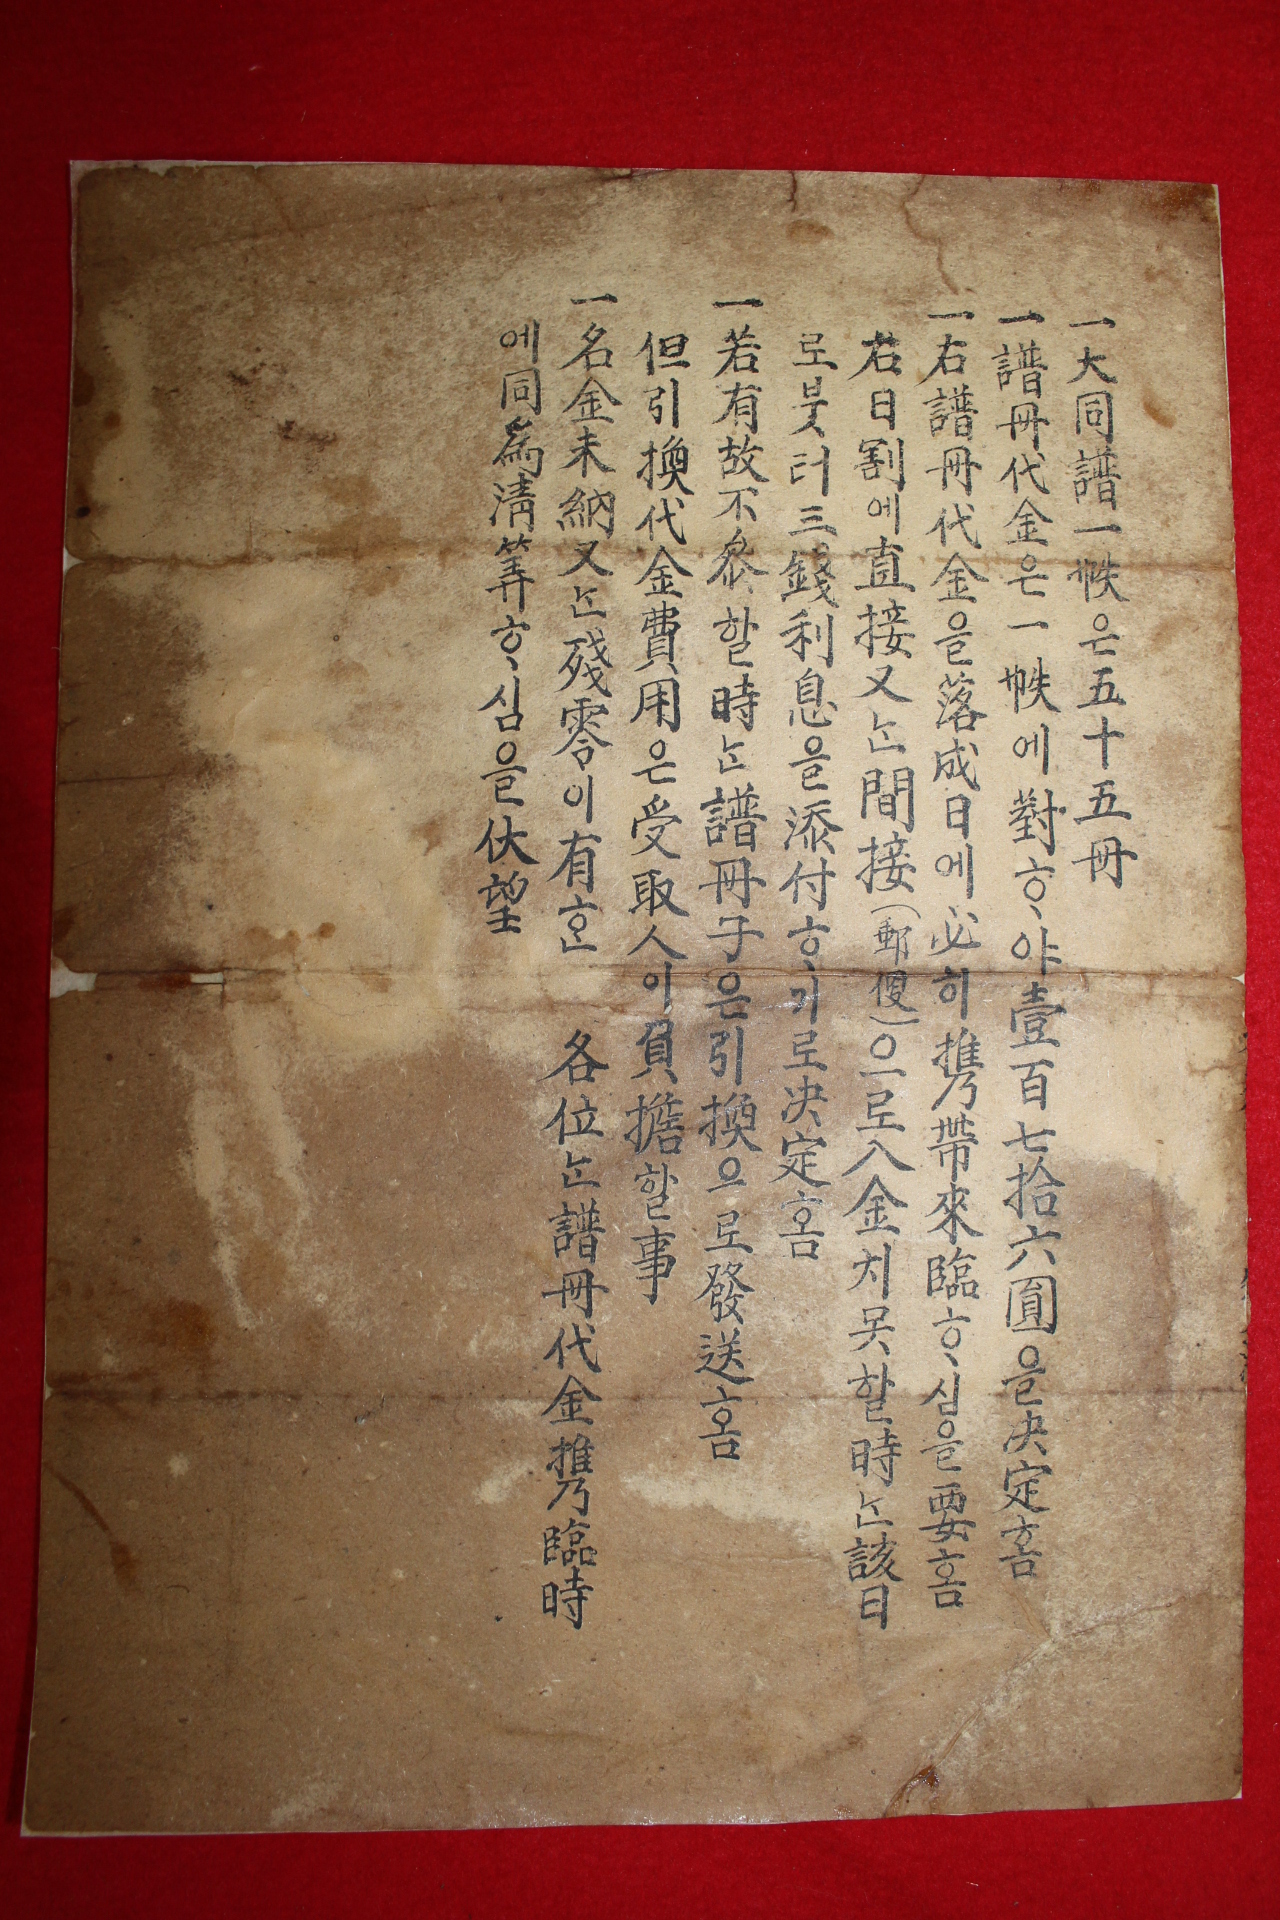 一大同譜一帙은五十五冊
一譜冊代金은一帙에對ᄒᆞ야壹百七拾六圓을決定홈
一右譜冊代金을落成日에必히携帶來臨ᄒᆞ심을要홈
若日割에直接又는間接(郵便)으로入金치못할時는該日
로붓터三錢利息을添付ᄒᆞ기로决定홈
一若有故不參할時는譜冊子은引換으로發送홈
但引換代金費用은受取人이負擔할事
一名金未納又는殘零이有혼 各位는譜冊代金携臨時
에同爲淸筭ᄒᆞ심을伏望